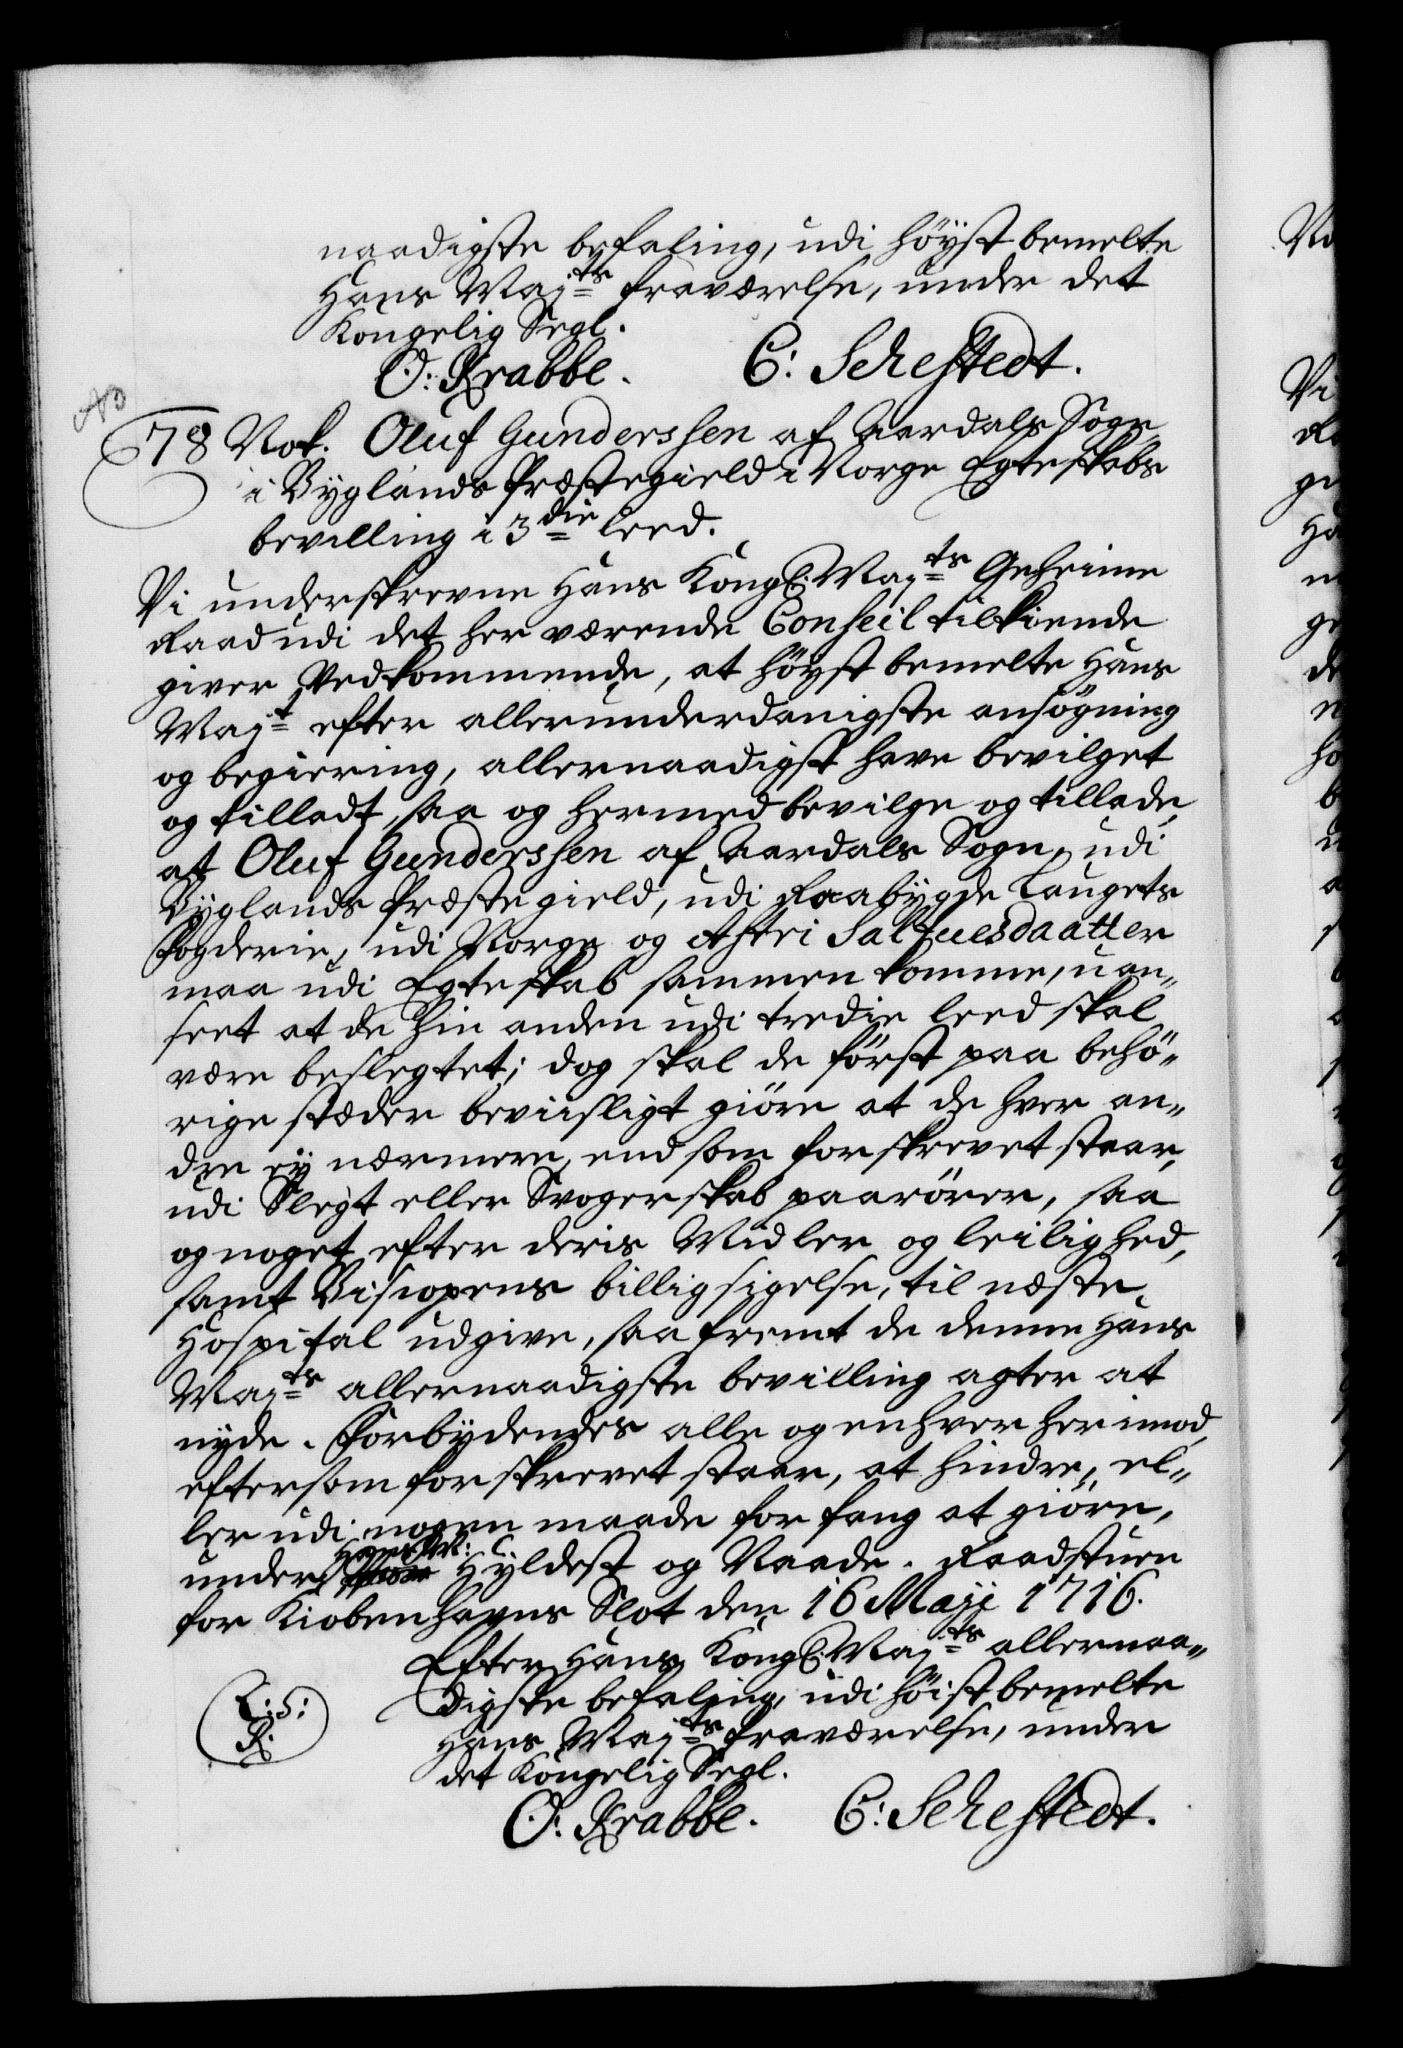 naadigste befaling, udi höyst bemelte
Hans Maj:ts fraværelse, under det
Kongelig Segl.
O: Krabbe. C: Sehestedt.
78 Not. Oluf Gunderssen af Aardals Sogn
i Byglands Præstegield i Norge Egteskabs
bevilling i 3die leed.
Vi underskrevne Hans Kongl: Maj:ts Geheime
Raad udi det her værende Conseil tilkiende
giver Vedkommende, at höyst bemelte Hans
Maj:t efter allerunderdanigste ansögning
og begiering, allernaadigst have bevilget
og tilladt, saa og hermed bevilge og tillade,
at Oluf Gunderssen af Aardals Sogn, udi
Byglands Præstegield, udi Raabygde Laugets
Fogderie, udi Norge og Astri Salfuesdaatter
maa udi Egteskab sammen komme, uan„
seet at de hin anden udi tredie leed skal
være beslegtet; dog skal de först paa behö„
rige stæder beviisligt giöre at de hver an„
dre ey nærmere, end som forskrevet staar,
udi Slegt eller Svogerskab paarörer, saa
og noget efter deris Midler og leilighed,
samt Biscopens billigsigelse, til næste
Hospital udgive, saafremt de denne Hans
Maj:ts allernaadigste bevilling agter at
nyde. Forbydendes alle og enhver her imod,
eftersom forskrevet staar, at hindre, el„
ler udi nogen maade forfang at giöre,
under Hans M: Hyldest og Naade. Raadstuen
for Kiobenhavns Slot den 16 Maji 1716.
Efter Hans Kongl: Maj:ts allernaa„
digste befaling, udi höist bemelte
L: S:
R.
Hans Maj:ts fraværelse, under
det Kongelig Segl.
O: Krabbe. C: Sehestedt.